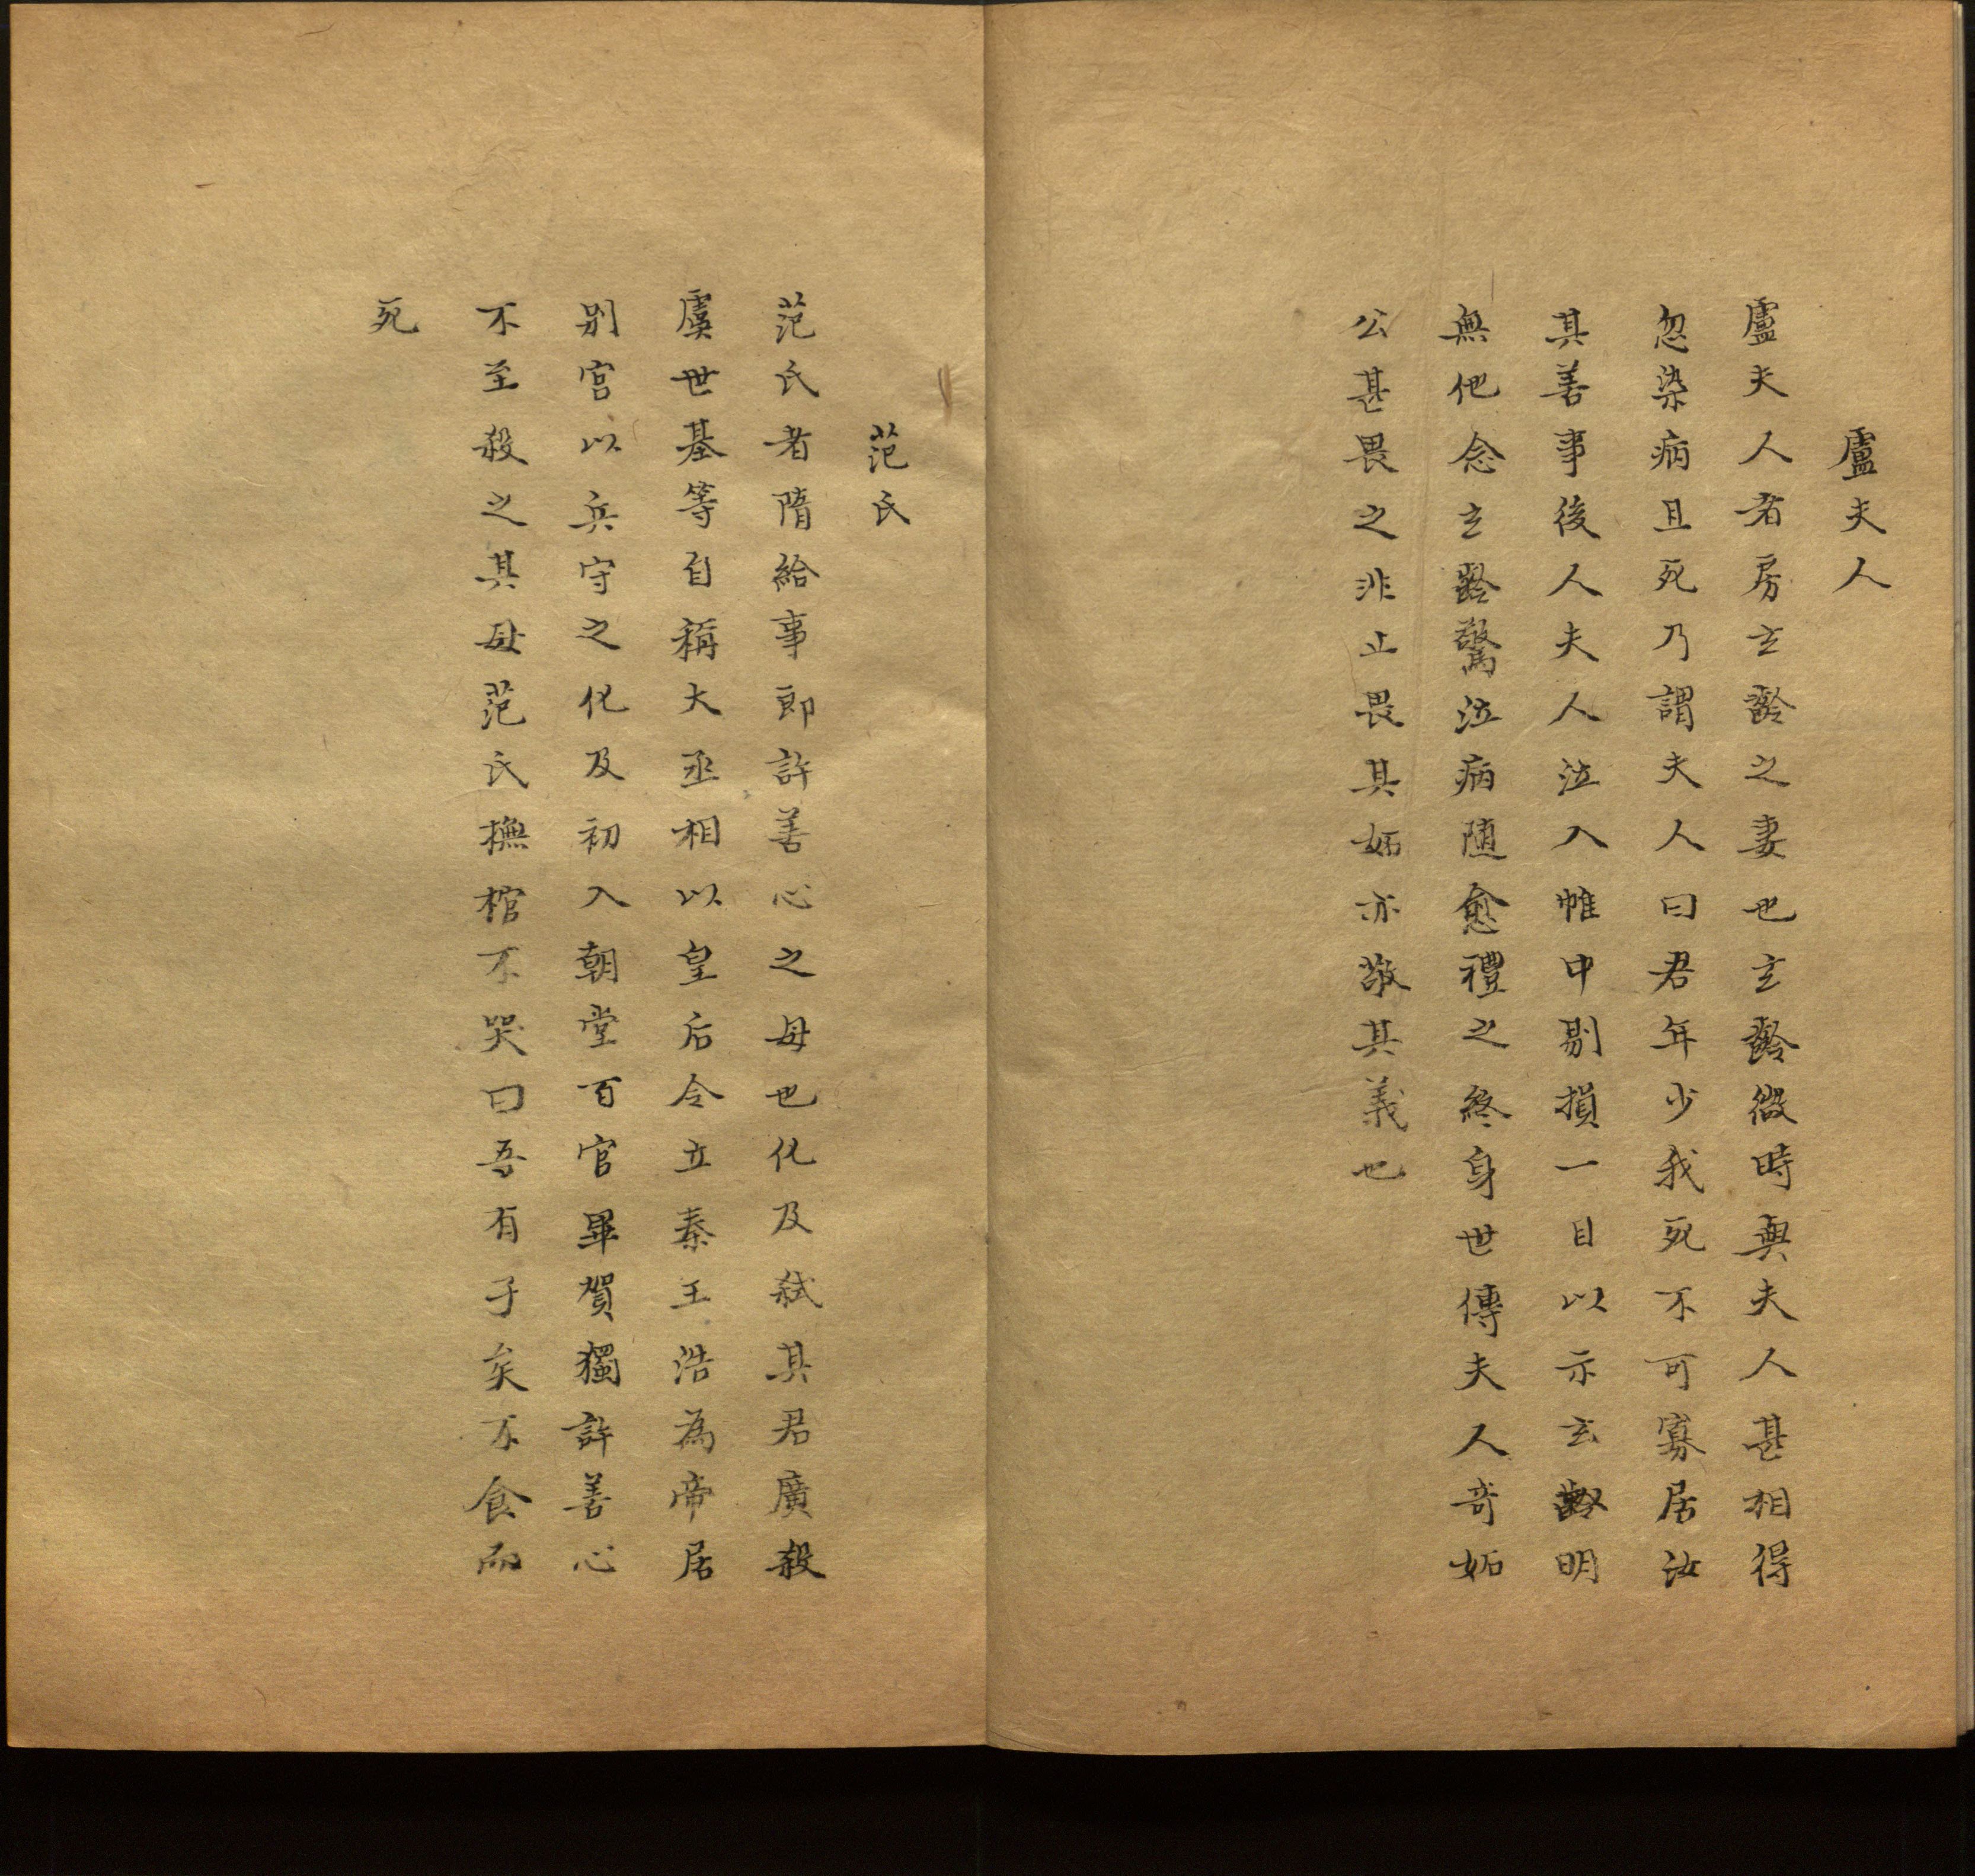 盧夫人
盧夫人者房玄齡之妻也玄齡微時與夫人甚相得
忽染病且死乃謂夫人曰君年少我死不可寡居汝
其善事後人夫人泣入帷中剔損一目以示玄齡明
無他念玄齡驚泣病随愈禮之終身世傳夫人奇妬
公甚畏之非止畏其妬亦敬其義也
范氏
范氏者隋給事郎許善心之母也化及弑其君廣殺
虞世基等自稱大丞相以皇后令立秦王浩為帝居
别宫以兵守之化及初入朝堂百官畢賀獨許善心
不至殺之其母范氏撫棺不哭曰吾有子矣不食而
死